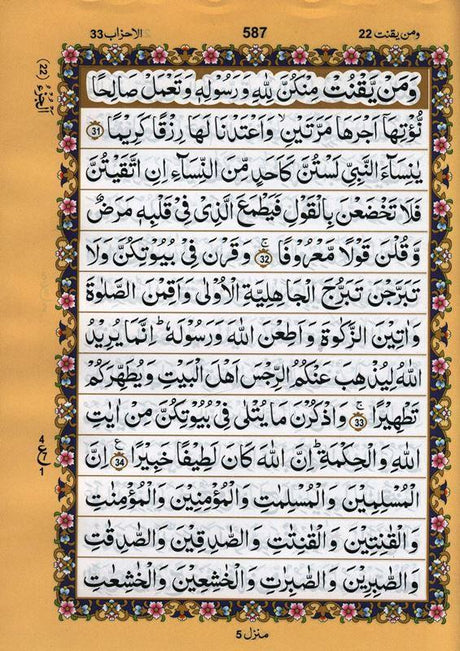 ومن يقنت 22
587
الاحزاب 33
الجزء (22)
وَمَنْ يَّقْنُتْ مِنْكُنَّ لِلّٰهِ وَرَسُوْلِهٖ وَتَعْمَلْ صَالِحًا
نُّؤْتِهَاۤ اَجْرَهَا مَرَّتَيْنِ ۙ وَاَعْتَدْنَا لَهَا رِزْقًا كَرِيْمًا 31
يٰنِسَآءَ النَّبِيِّ لَسْتُنَّ كَاَحَدٍ مِّنَ النِّسَآءِ اِنِ اتَّقَيْتُنَّ
فَلَا تَخْضَعْنَ بِالْقَوْلِ فَيَطْمَعَ الَّذِيْ فِيْ قَلْبِهٖ مَرَضٌ
وَّقُلْنَ قَوْلًا مَّعْرُوْفًا ۚ 32 وَقَرْنَ فِيْ بُيُوْتِكُنَّ وَلَا
تَبَرَّجْنَ تَبَرُّجَ الْجَاهِلِيَّةِ الْاُوْلٰى وَاَقِمْنَ الصَّلٰوةَ
وَاٰتِيْنَ الزَّكٰوةَ وَاَطِعْنَ اللّٰهَ وَرَسُوْلَهٗ ؕ اِنَّمَا يُرِيْدُ
اللّٰهُ لِيُذْهِبَ عَنْكُمُ الرِّجْسَ اَهْلَ الْبَيْتِ وَيُطَهِّرَكُمْ
تَطْهِيْرًا ۚ 33 وَاذْكُرْنَ مَا يُتْلٰى فِيْ بُيُوْتِكُنَّ مِنْ اٰيٰتِ
اللّٰهِ وَالْحِكْمَةِ ؕ اِنَّ اللّٰهَ كَانَ لَطِيْفًا خَبِيْرًا ع 34 اِنَّ
الْمُسْلِمِيْنَ وَالْمُسْلِمٰتِ وَالْمُؤْمِنِيْنَ وَالْمُؤْمِنٰتِ
وَالْقٰنِتِيْنَ وَالْقٰنِتٰتِ وَالصّٰدِقِيْنَ وَالصّٰدِقٰتِ
وَالصّٰبِرِيْنَ وَالصّٰبِرٰتِ وَالْخٰشِعِيْنَ وَالْخٰشِعٰتِ
منزل 5